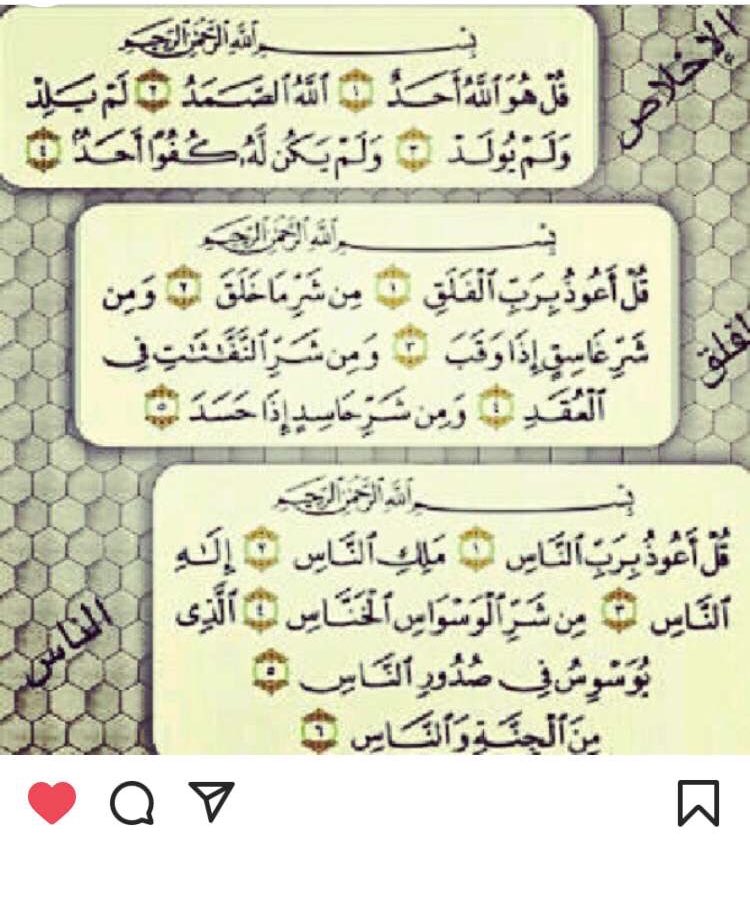 الإخلاص
بِسْمِ ٱللَّهِ ٱلرَّحْمَٰنِ ٱلرَّحِيمِ
قُلْ هُوَ ٱللَّهُ أَحَدٌ ١ ٱللَّهُ ٱلصَّمَدُ ٢ لَمْ يَلِدْ
وَلَمْ يُولَدْ ٣ وَلَمْ يَكُن لَّهُۥ كُفُوًا أَحَدٌۢ ٤
لفلق
بِسْمِ ٱللَّهِ ٱلرَّحْمَٰنِ ٱلرَّحِيمِ
قُلْ أَعُوذُ بِرَبِّ ٱلْفَلَقِ ١ مِن شَرِّ مَا خَلَقَ ٢ وَمِن
شَرِّ غَاسِقٍ إِذَا وَقَبَ ٣ وَمِن شَرِّ ٱلنَّفَّٰثَٰتِ فِى
ٱلْعُقَدِ ٤ وَمِن شَرِّ حَاسِدٍ إِذَا حَسَدَ ٥
الناس
بِسْمِ ٱللَّهِ ٱلرَّحْمَٰنِ ٱلرَّحِيمِ
قُلْ أَعُوذُ بِرَبِّ ٱلنَّاسِ ١ مَلِكِ ٱلنَّاسِ ٢ إِلَٰهِ
ٱلنَّاسِ ٣ مِن شَرِّ ٱلْوَسْوَاسِ ٱلْخَنَّاسِ ٤ ٱلَّذِى
يُوَسْوِسُ فِى صُدُورِ ٱلنَّاسِ ٥
مِنَ ٱلْجِنَّةِ وَٱلنَّاسِ ٦